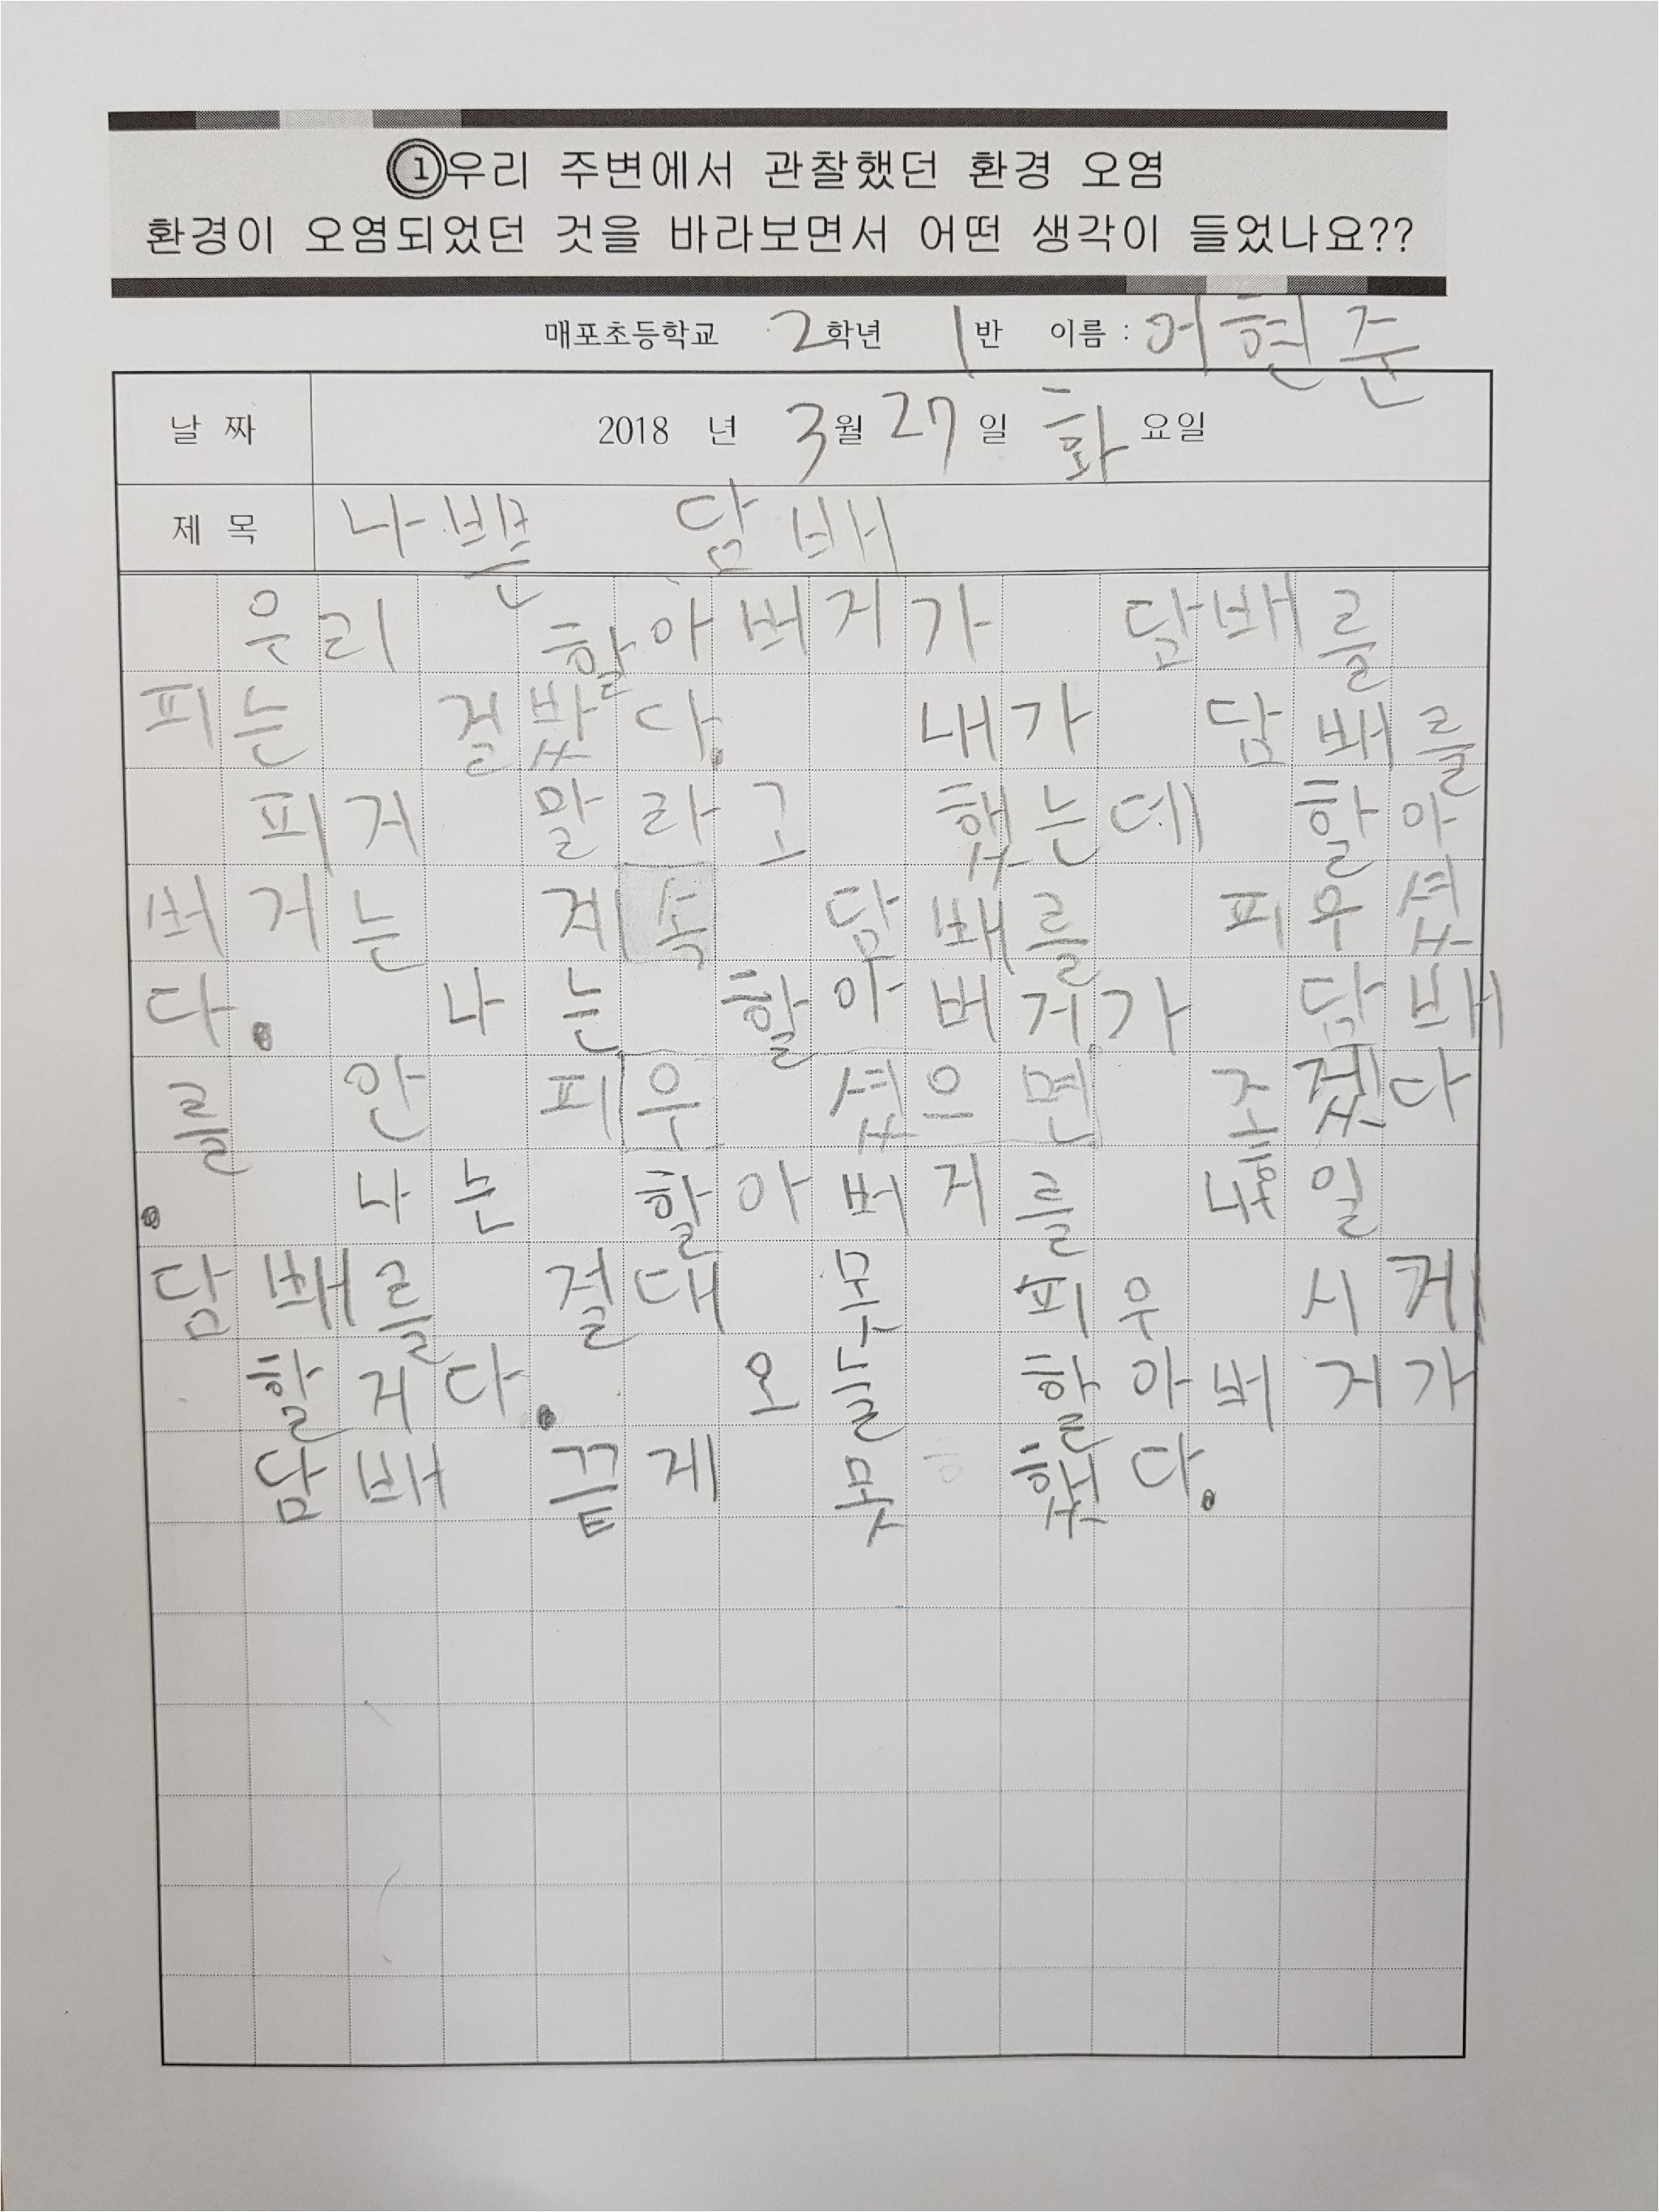 ①우리 주변에서 관찰했던 환경 오염
환경이 오염되었던 것을 바라보면서 어떤 생각이 들었나요??
매포초등학교 2학년 1반 이름 : 어현준
날 짜 2018 년 3월 27일 화요일
제 목 나쁜 담배
우리 할아버지가 담배를
피는 걸봤다. 내가 담배를
피지 말라고 했는데 할아
버지는 계속 담배를 피우셨
다. 나는 할아버지가 담배
를 안 피우 셨으면 좋겠다
. 나는 할아버지를 내일
담배를 절대 못 피우 시게
할거다. 오늘 할아버지가
담배 끝게 못 했다.